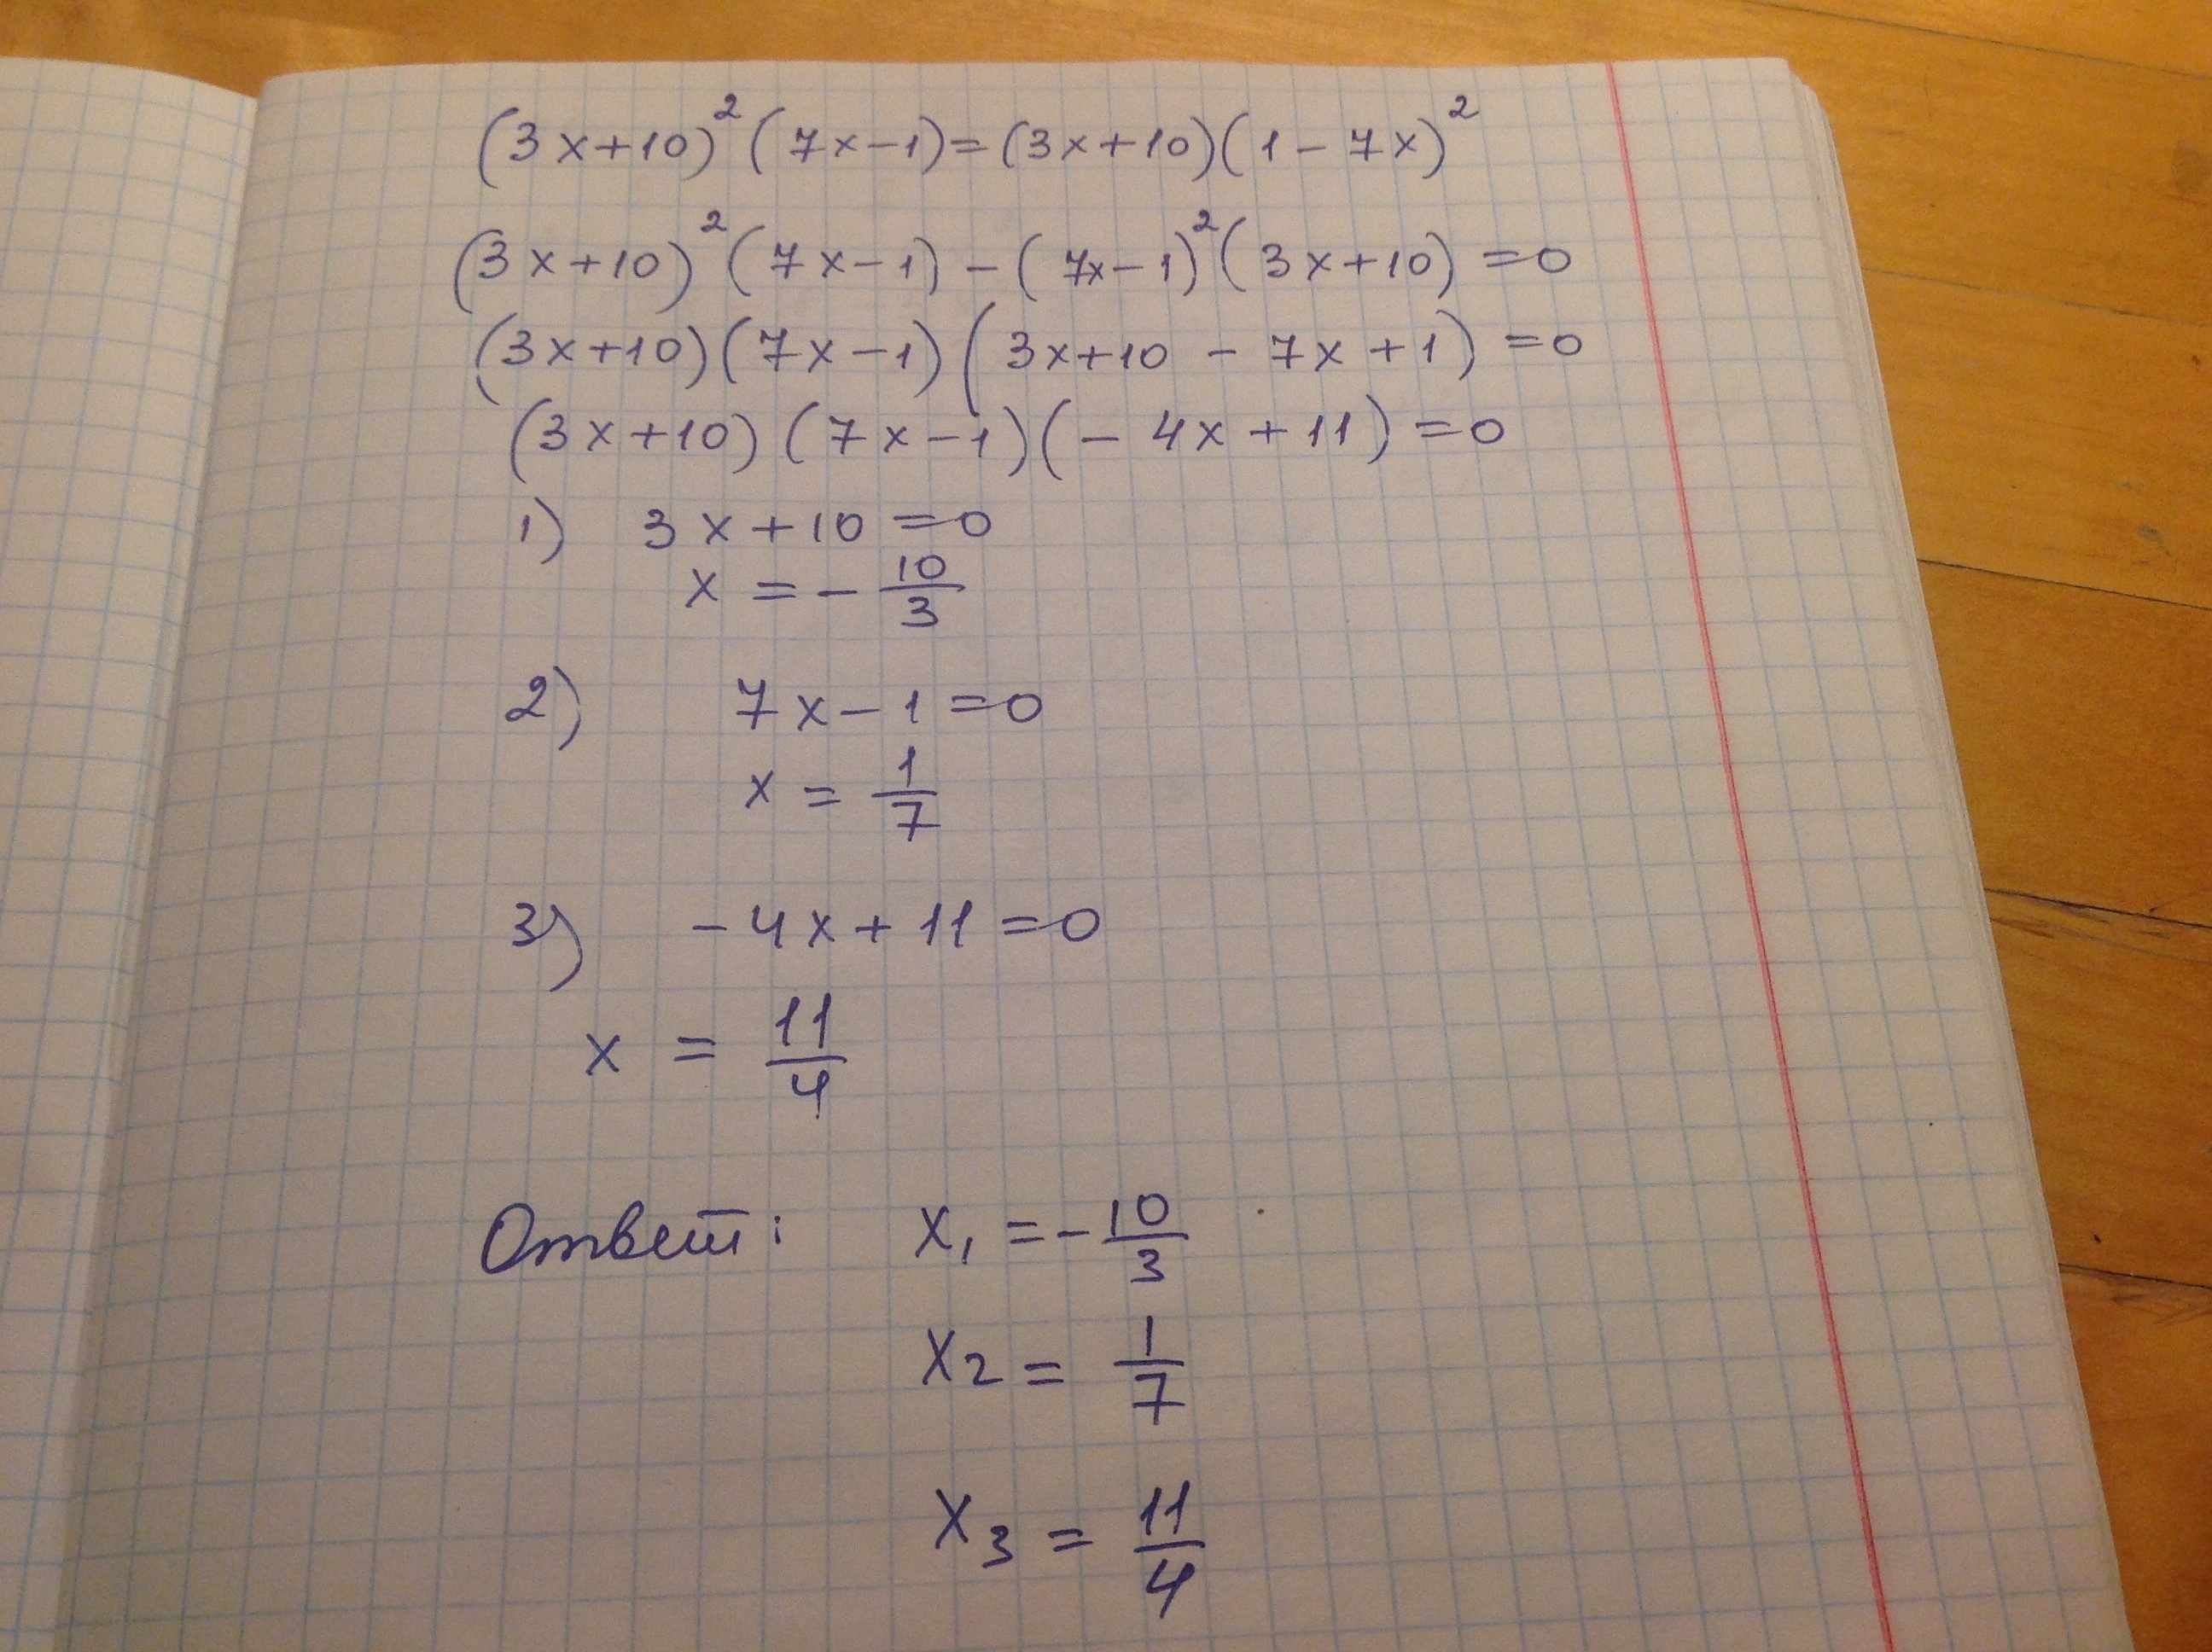 (3x+10)²(7x-1)=(3x+10)(1-7x)²
(3x+10)²(7x-1)-(7x-1)²(3x+10)=0
(3x+10)(7x-1)(3x+10-7x+1)=0
(3x+10)(7x-1)(-4x+11)=0
1) 3x+10=0
x=-10/3
2) 7x-1=0
x=1/7
3) -4x+11=0
x=11/4
Ответ: x₁=-10/3
x₂=1/7
x₃=11/4